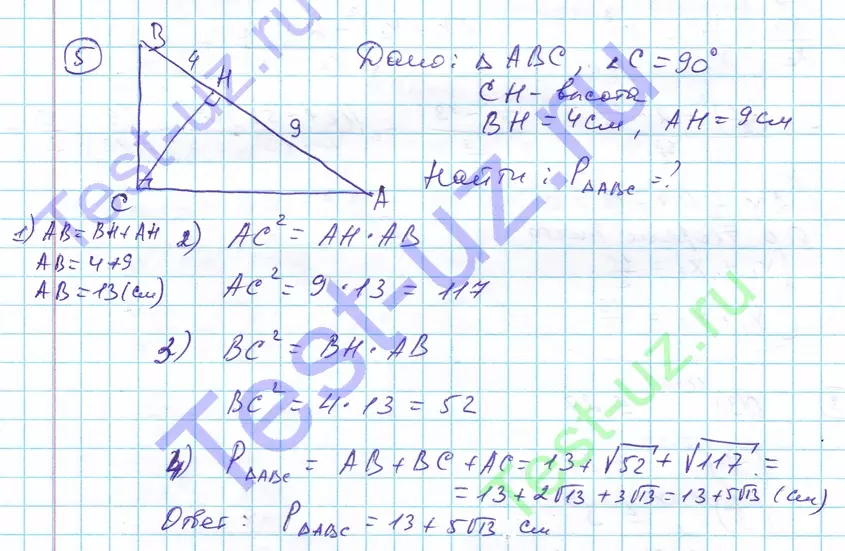 5
B
4
H
9
C
A
Дано: △ABC, ∠C = 90°
CH - высота
BH = 4 см, AH = 9 см
Найти: P△ABC = ?
1) AB = BH + AH
AB = 4 + 9
AB = 13 (см)
2) AC² = AH · AB
AC² = 9 · 13 = 117
3) BC² = BH · AB
BC² = 4 · 13 = 52
4) P△ABC = AB + BC + AC = 13 + √52 + √117 =
= 13 + 2√13 + 3√13 = 13 + 5√13 (см)
Ответ: P△ABC = 13 + 5√13 см
Test-uz.ru
Test-uz.ru
Test-uz.ru